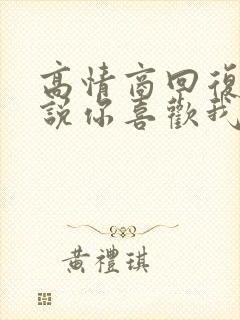 高情商回復
說你喜歡我
黃禮琪